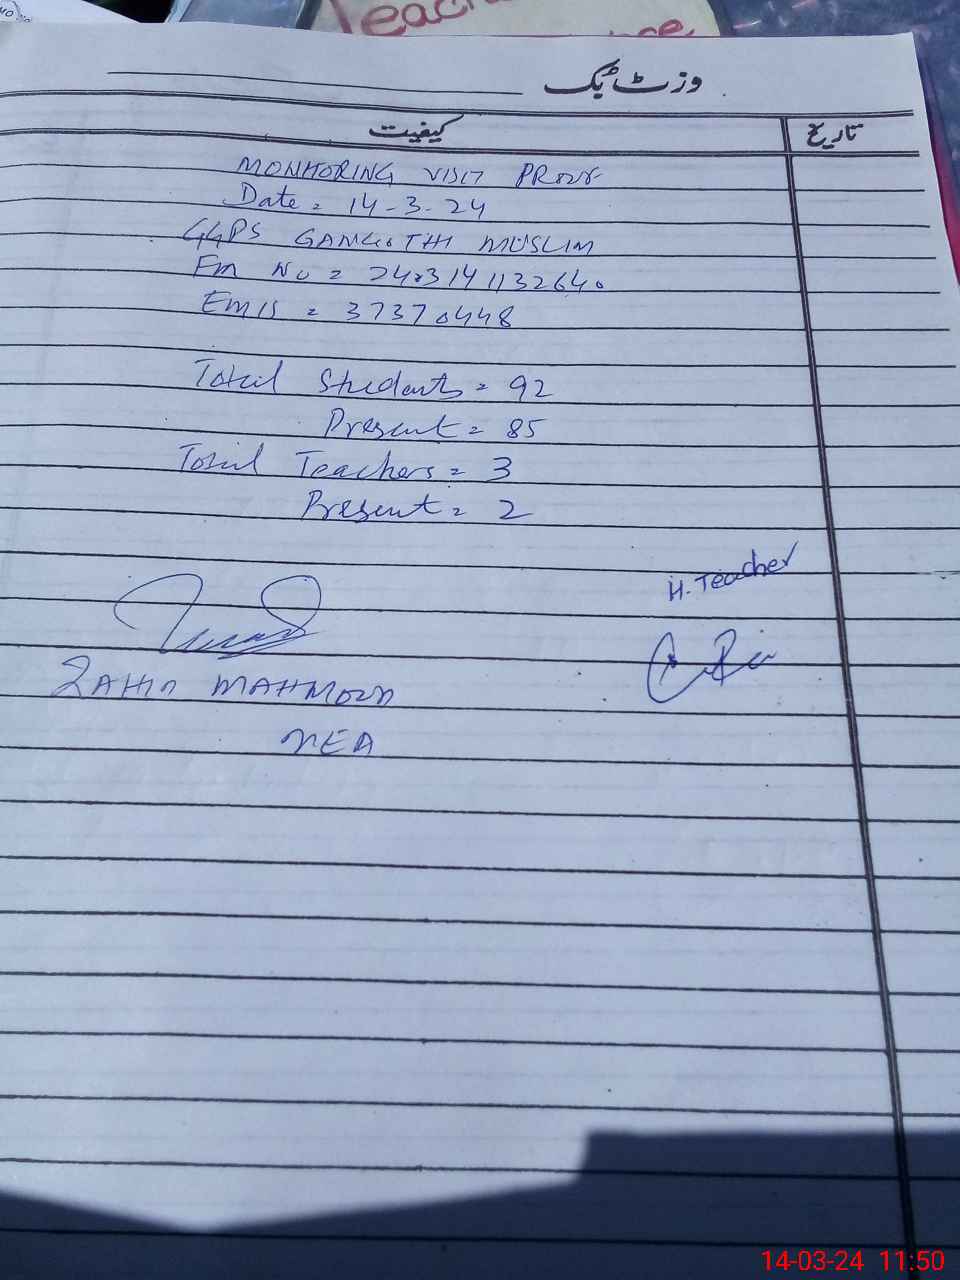 Teach
وزٹ بک
کیفیت
تاریخ
MONITORING VISIT PROOF
Date = 14-3-24
GGPS GANGOTHI MUSLIM
EMIS = 37370448
Total Students = 92
Present = 85
Total Teachers = 3
Present = 2
H. Teacher
ZAHID MAHMOOD
MEA
14-03-24 11:50